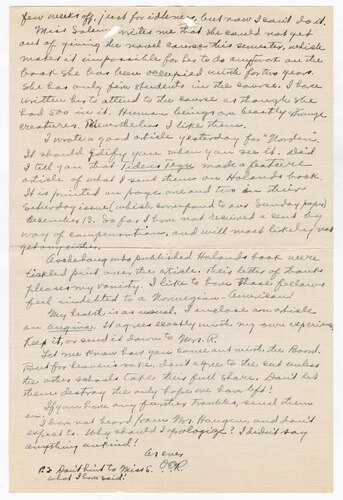 few weeks off, just for idleness, but now I can't do it.
Miss Salem writes me that she could not get
out of giving the novel courses this semester, which
makes it impossible for her to do anything on the
book she has been occupied with for two years.
She has only five students in the course. I have
written her to attend to the course as though she
had 500 in it. Human beings are beastly strange
creatures. Nevertheless I like them.
I wrote a good article yesterday for "Norden".
It should edify you when you see it. Did
I tell you that Tidens Tegn made a feature
article of what I sent them on Halands book
It is printed on page one and two in their
Saturday issue (which correspond to our Sunday paper)
December 13. So far I have not received a cent by
way of compensation, and will most likely not
get any either.
who published Halands book were
tickled pink over the article. Their letter of thanks
pleases my vanity. I like to have those fellows
feel indebted to a Norwegian-American!
My health is as usual. I enclose an article
on angina. It agrees exactly with my own experience
Keep it, or send it down to Mrs. R.
Let me know how you come out with the Board.
But for heaven's sake, don't agree to the cut unless
the other schools take their full share. Don't let
them destroy the only hope we have left!
If you have any further troubles, send them
on.
I have not heard from Mr. Haugen, and don't
expect to. Why should I apologize? I didn't say
anything unkind!
As ever
OER.
P.S. Don't hint to Miss S.
what I have said.